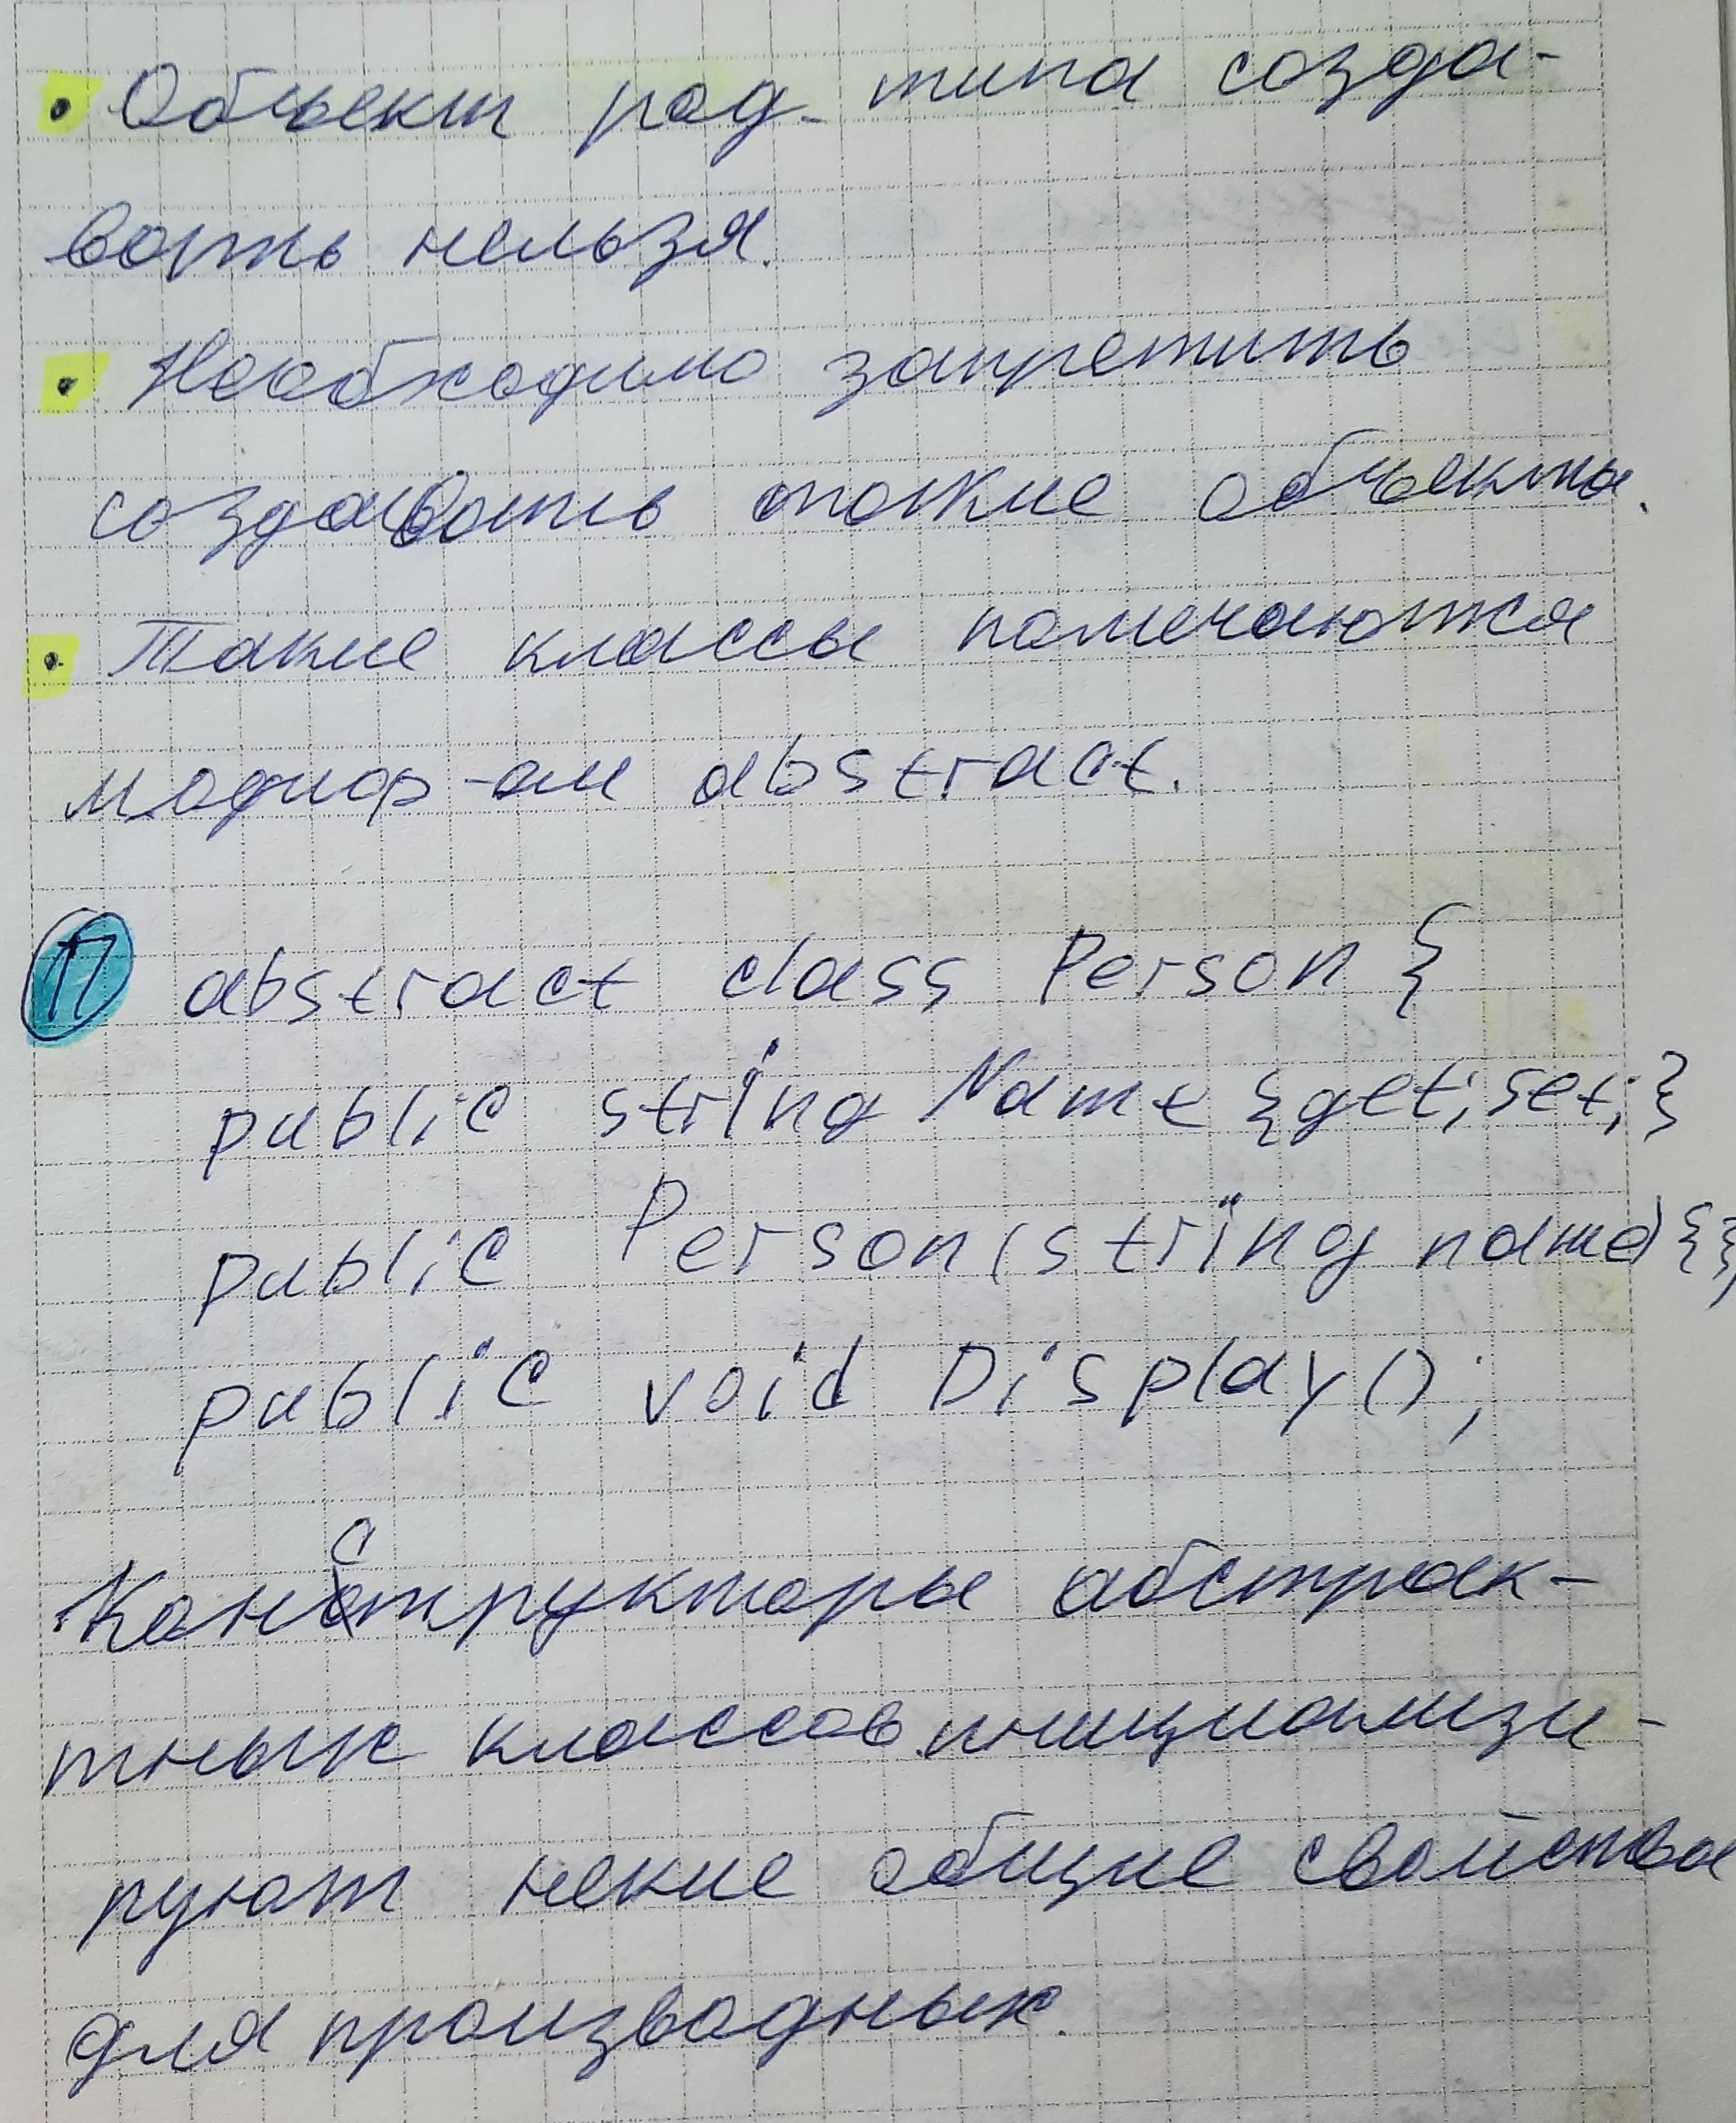 • Объект род. типа созда-
вать нельзя.
• Необходимо запретить
создавать такие объекты.
• Такие классы помечаются
модиф-ом abstract.
П abstract class Person {
public string Name {get; set;}
public Person(string name) {};
public void Display();
Конструкторы абстрак-
тных классов инициализи-
руют некие общие свойства
для производных.